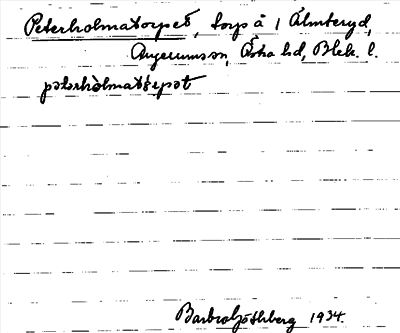 Peterholmatorpet, torp å 1 Älmteryd,
Augerumssn, Östra hd, Blek. l.
petərhòlmatɷrpət
Barbro Göthberg 1934.